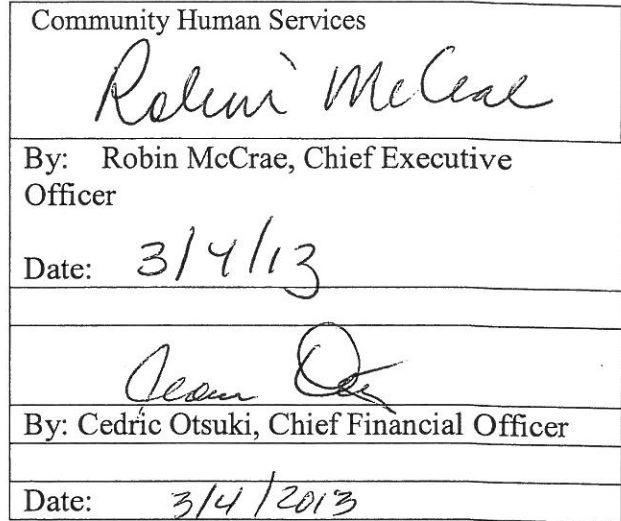 Community Human Services
Robin McCrae
By: Robin McCrae, Chief Executive
Officer
Date: 3/4/13
By: Cedric Otsuki, Chief Financial Officer
Date: 3/4/2013